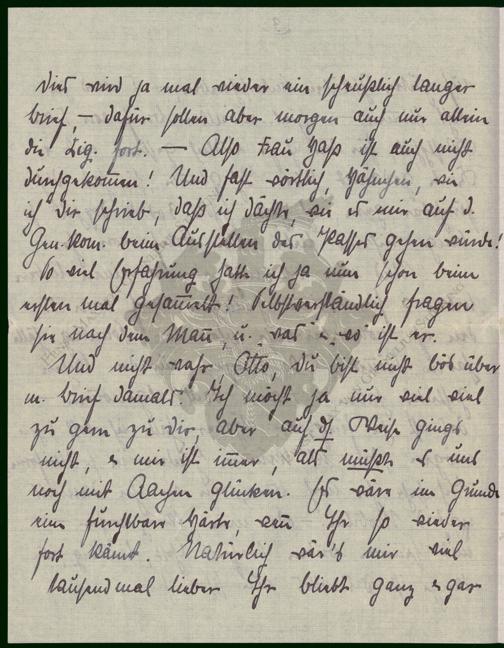 Dies wird ja mal wieder ein scheußlich langer
Brief, – dafür sollen aber morgen auch nur allein
die Zig. fort. — Also Frau Haß ist auch nicht
durchgekom̄en! Und fast wörtlich, Hähnchen, wie
ich Dir schrieb, daß ich dächte, wie es mir auf d.
Gen. kom. beim Ausstellen des Passes gehen würde!
So viel Erfahrung hatte ich ja nun schon beim
ersten mal gesam̄elt! Selbstverständlich fragen
sie nach dem Man̄ u. was u. wo ist er.
Und nicht wahr Otto, Du bist nicht bös über
m. Brief damals. Ich möcht ja nur viel viel
zu gern zu Dir, aber auf d. Weise gings
nicht, u. mir ist im̄er, als müßte es uns
noch mit Aachen glücken. Es wäre im Grunde
eine furchtbare Härte, wen̄ – Ihr so wieder
fort kämt. Natürlich wär's mir viel
tausendmal lieber Ihr bliebt ganz u. gar